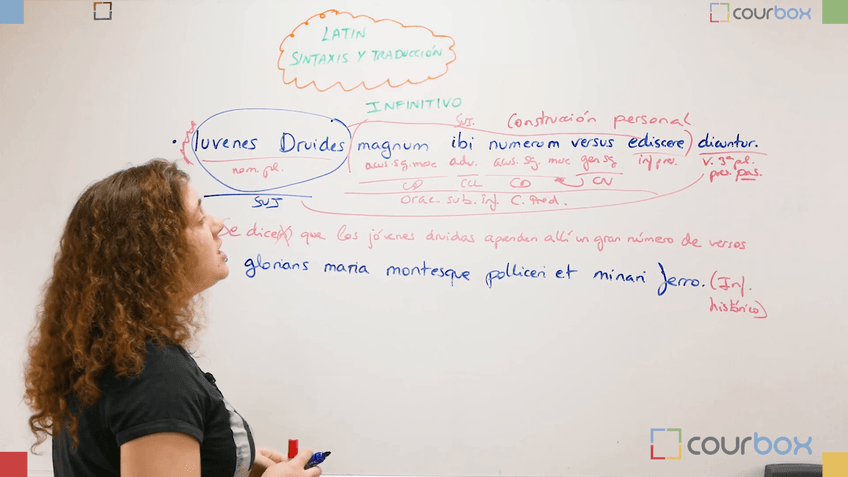 courbox
LATIN
SINTAXIS Y TRADUCCIÓN
INFINITIVO
SUJ. Construcción personal
• Iuvenes Druides magnum ibi numerum versus ediscere dicuntur.
nom. pl. acus. sg. masc adv. acus. sg. masc gen sg. inf. pres. v. 3ª pl.
pres. pas.
CD CCL CD CN
SUJ Orac. sub. inf. C. Pred.
Se dice que los jóvenes druidas aprenden allí un gran número de versos
glorians maria montesque polliceri et minari ferro. (Inf.
histórico)
courbox